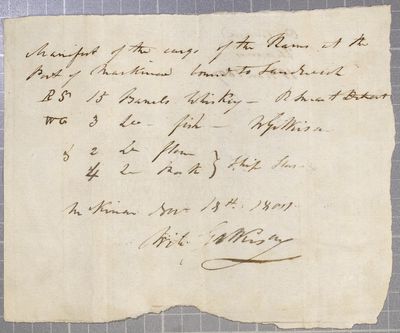 Manifest of the cargo of the Nancy at the
Port of Mackinac bound to Sandwich
RS 15 Barrels Whiskey — R Smart
WG 3 Do — fish — W Gilkison
2 Do flour
4 Do Pork } Ship Stores
Novr 13th 1801
Gilkison